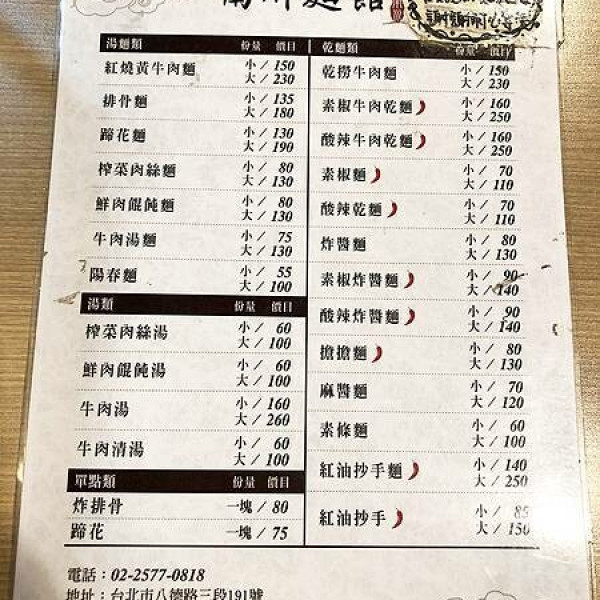 麵館
謝謝耐心等候
湯麵類 份量 價目
紅燒黃牛肉麵 小/150 大/230
排骨麵 小/135 大/180
蹄花麵 小/130 大/190
榨菜肉絲麵 小/80 大/130
鮮肉餛飩麵 小/80 大/130
牛肉湯麵 小/75 大/130
陽春麵 小/55 大/100
湯類 份量 價目
榨菜肉絲湯 小/60 大/100
鮮肉餛飩湯 小/60 大/100
牛肉湯 小/160 大/260
牛肉清湯 小/60 大/100
單點類 份量 價目
炸排骨 一塊/80
蹄花 一塊/75
乾麵類 份量 價目
乾撈牛肉麵 小/150 大/230
素椒牛肉乾麵 小/160 大/250
酸辣牛肉乾麵 小/160 大/250
素椒麵 小/70 大/110
酸辣乾麵 小/70 大/110
炸醬麵 小/80 大/130
素椒炸醬麵 小/90 大/140
酸辣炸醬麵 小/90 大/140
擔擔麵 小/80 大/130
麻醬麵 小/70 大/120
素條麵 小/60 大/100
紅油抄手麵 小/140 大/250
紅油抄手 小/85 大/150
電話：02-2577-0818
地址：台北市八德路三段191號